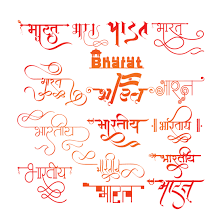 भारत भारत भारत भारत
भारत Bharat
भारत भारत
भारतीय भारतीय भारतीय
भारतीय भारतीय
भारतीय भारत भारत